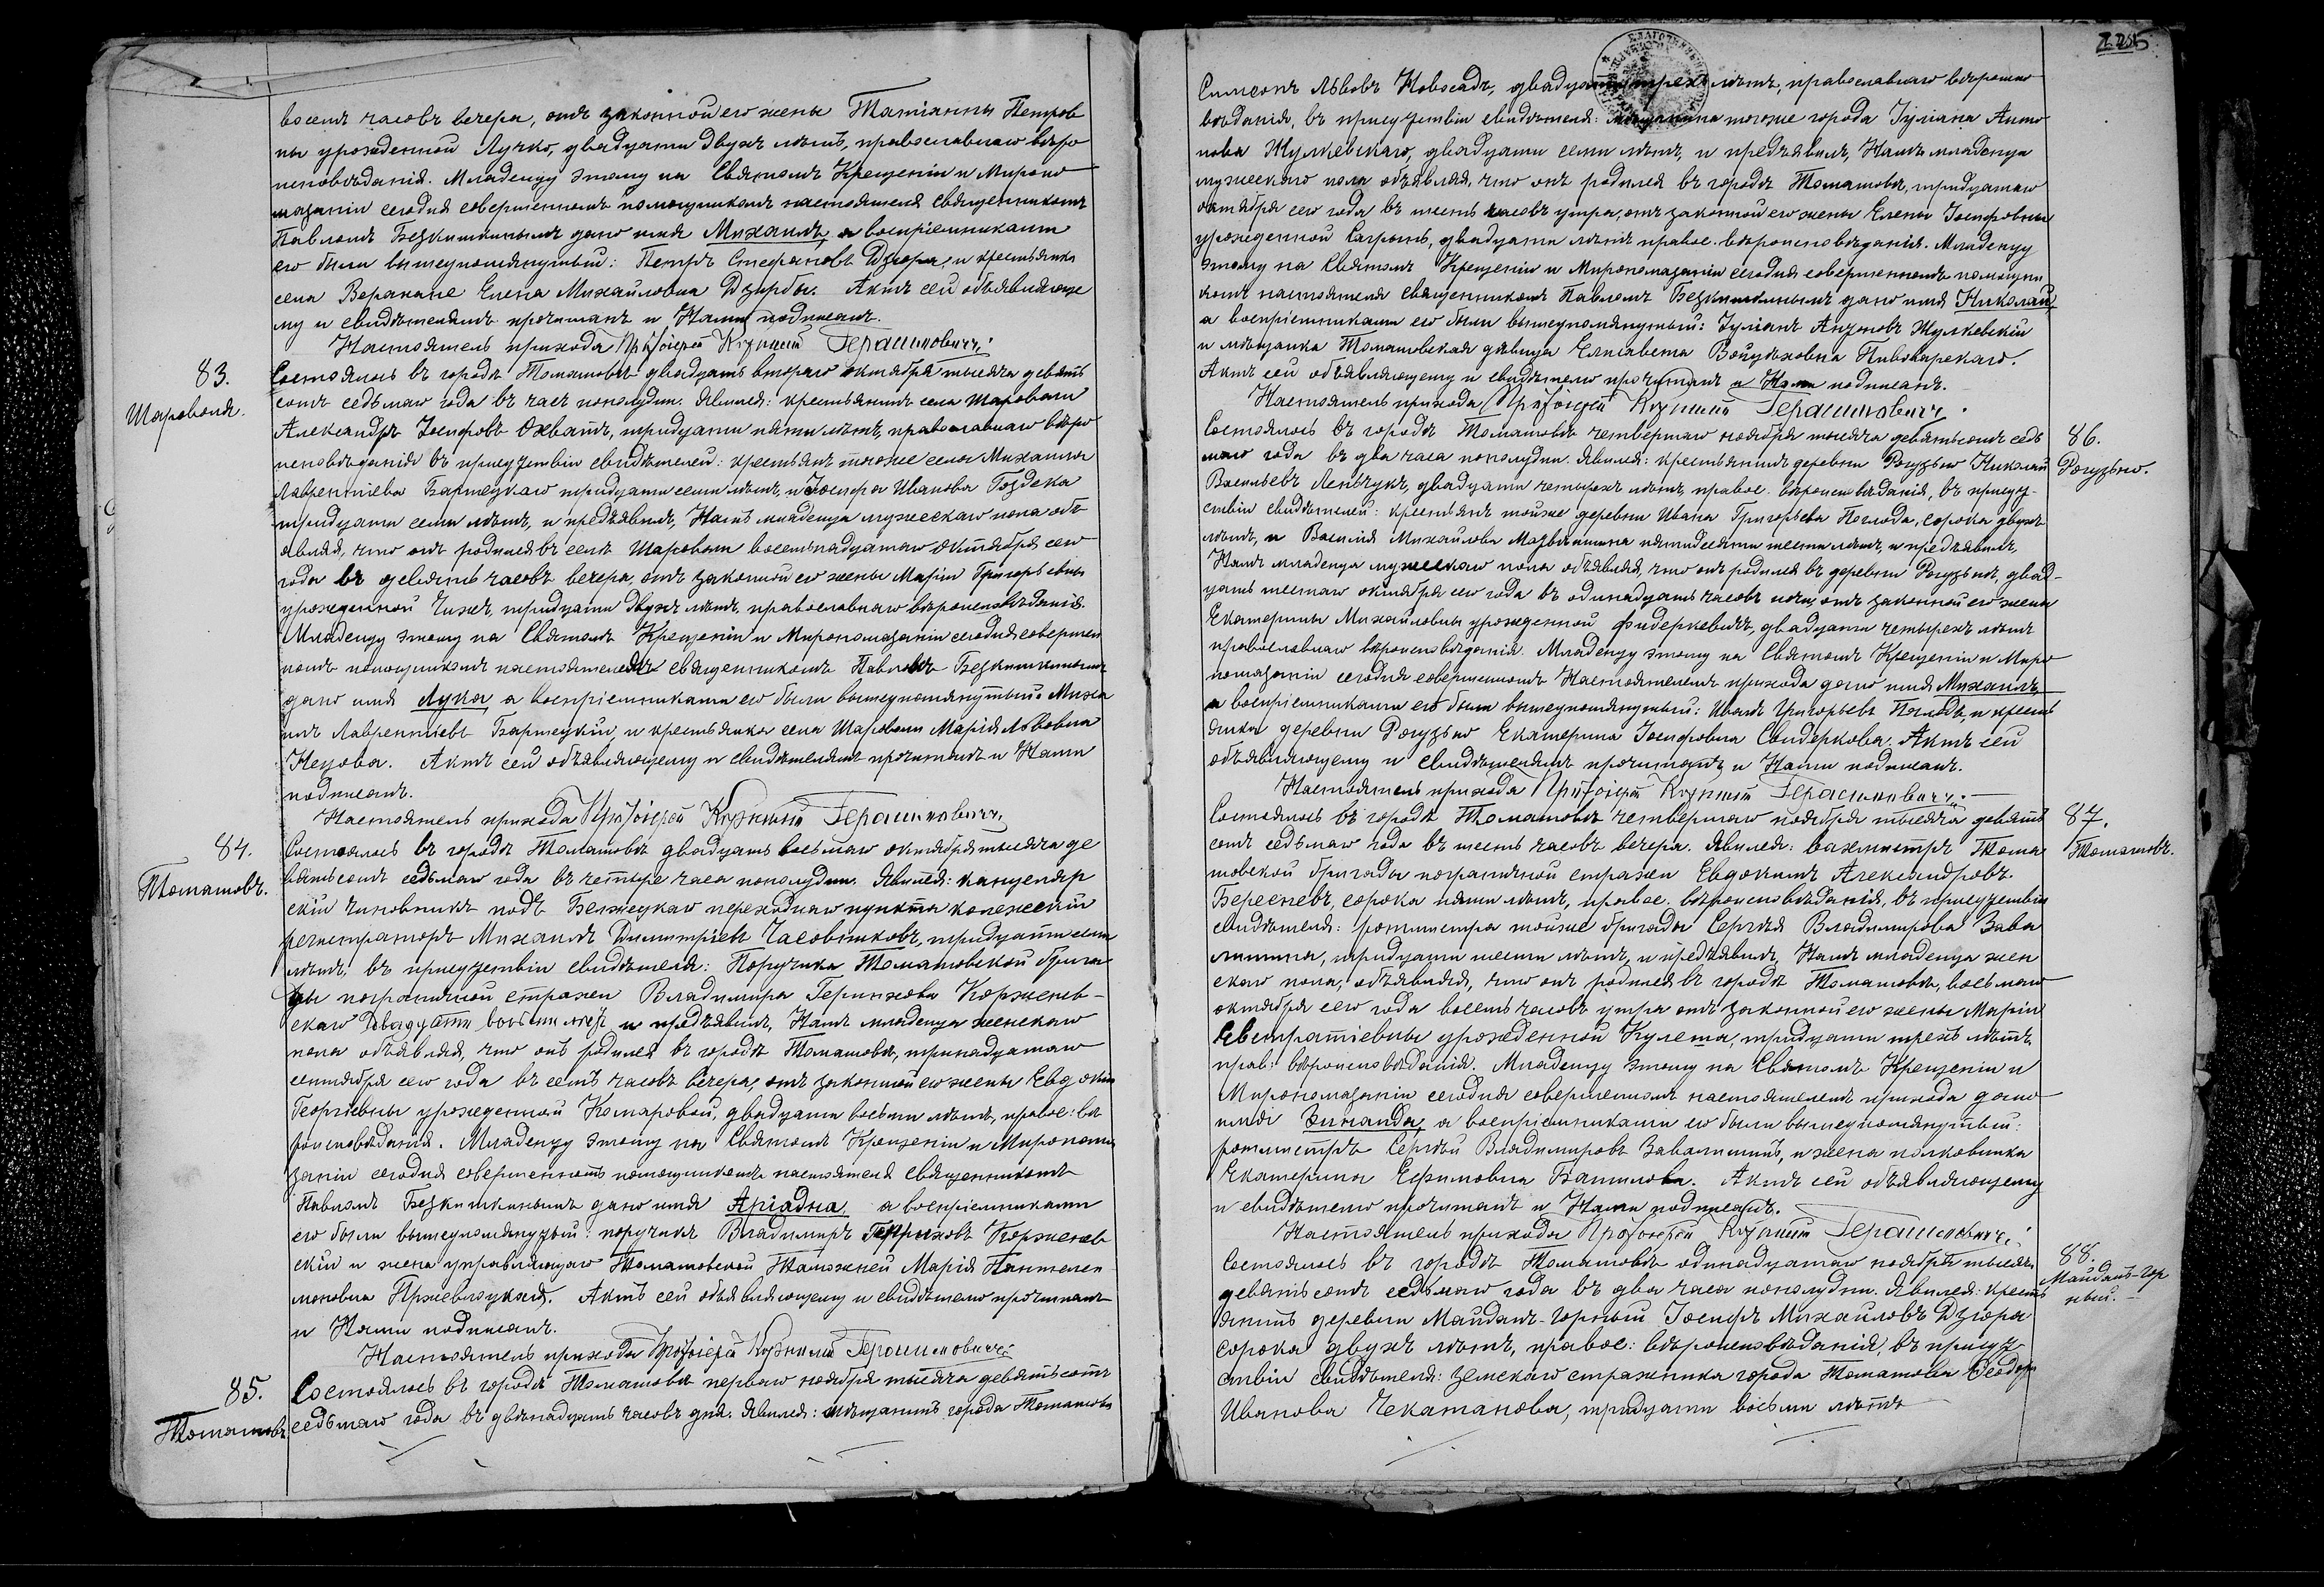 восемь часовъ вечера, отъ законной его жены Татіанны Петров
ны урожденной Лучко, двадцати двухъ лѣтъ, православнаго вѣро
исповѣданія. Младенцу этому на Святомъ Крещеніи и Миропо
мазаніи сегодня совершенномъ помощникомъ настоятеля священникомъ
Павломъ Безкишкинымъ дано имя Михаилъ, а воспріемниками
его были вышеупомянутый: Петръ Стефановъ Дзюра, и крестьянка
села Верахане Елена Михайловна Дзирба. Актъ сей объявляюще
му и свидѣтелямъ прочитанъ и Нами подписанъ.
Настоятель прихода Протоіерей Корнилій Герасимовичъ.
83.
Шароволя.
Состоялось въ городѣ Томашовѣ двадцать втораго октября тысяча девять
сотъ седьмаго года въ часъ пополудни. Явился: крестьянинъ села Шароволи
Александръ Іосифовъ Охватъ, тридцати пяти лѣтъ, православнаго вѣро
исповѣданія въ присутствіи свидѣтелей: крестьянъ тогоже села Михаила
Лаврентіева Бартецкаго тридцати семи лѣтъ, и Іосифа Иванова Гоздека
тридцати семи лѣтъ, и предъявилъ, Намъ младенца мужескаго пола объ
являя, что онъ родился въ селѣ Шароволи восемьнадцатаго октября сего
года въ девять часовъ вечера, отъ законной его жены Маріи Григорьевны
урожденной Чижъ, тридцати двухъ лѣтъ, православнаго вѣроисповѣданія.
Младенцу этому на Святомъ Крещеніи и Миропомазаніи сегодня совершен
номъ помощникомъ настоятеля священникомъ Павломъ Безкишкинымъ
дано имя Лука, а воспріемниками его были вышеупомянутый: Миха
илъ Лаврентіевъ Бартецкій, и крестьянка села Шароволи Марія Львовна
Нецова. Актъ сей объявляющему и свидѣтелямъ прочитанъ и Нами
подписанъ.
Настоятель прихода Протоіерей Корнилій Герасимовичъ
84.
Томашовъ.
Состоялось въ городѣ Томашовѣ двадцать восьмаго октября тысяча де
вятьсотъ седьмаго года въ четыре часа пополудни. Явился: канцеляр
скій чиновникъ подъ Белжецкаго переходнаго пункта колежскій
регистраторъ Михаилъ Димитріевъ Часовниковъ, тридцати семи
лѣтъ, въ присутствіи свидѣтеля: Поручика Томашовской брига
ды пограничной стражи Владимира Генрихова Корженев-
скаго двадцати восьми лѣтъ и предъявилъ, Намъ младенца женскаго
пола объявляя, что онъ родился въ городѣ Томашовѣ, тринадцатаго
сентября сего года въ семь часовъ вечера, отъ законной его жены Евдокіи
Георгіевны урожденной Комаровой, двадцати восьми лѣтъ, правос: вѣ
роисповѣданія. Младенцу этому на Святомъ Крещеніи и Миропома
заніи сегодня совершенномъ помощникомъ настоятеля священникомъ
Павломъ Безкишкинымъ дано имя Аріадна, а воспріемниками
его были вышеупомянутый: поручикъ Владимиръ Генриховъ Корженев
скій и жена управляющаго Томашовской Таможней Марія Пантелеи
моновна Пржевлуцкая. Актъ сей объявляющему и свидѣтелю прочитанъ
и Нами подписанъ.
Настоятель прихода Протоіерей Корнилій Герасимовичъ.
85.
Томашовъ.
Состоялось въ городѣ Томашовѣ перваго ноября тысяча девятьсотъ
седьмаго года въ двѣнадцать часовъ дня. Явился: мѣщанинъ города Томашова
Симеонъ Львовъ Новосадъ, двадцати трехъ лѣтъ, православнаго вѣроиспо
вѣданія, въ присутствіи свидѣтеля: мѣщанина тогоже города Іуліана Анто
нова Жулкевскаго, двадцати семи лѣтъ, и предъявилъ, Намъ младенца
мужескаго пола объявляя, что онъ родился въ городѣ Томашовѣ, тридцатаго
октября сего года въ шесть часовъ утра, отъ законной его жены Елены Іосифовны
урожденной Сагрынь, двадцати лѣтъ правос. вѣроисповѣданія. Младенцу
этому на Святомъ Крещеніи и Миропомазаніи сегодня совершенномъ помощни
комъ настоятеля священникомъ Павломъ Безкишкинымъ дано имя Николай,
а воспріемниками его были вышеупомянутый: Іуліанъ Антоновъ Жулкевскій
и мѣщанка Томашовская дѣвица Елисавета Войцѣховна Пивоварскаго.
Актъ сей объявляющему и свидѣтелю прочитанъ и Нами подписанъ.
Настоятель прихода Протоіерей Корнилій Герасимовичъ.
86.
Рогузьно.
Состоялось въ городѣ Томашовѣ четвертаго ноября тысяча девятьсотъ седь
маго года въ два часа пополудни. Явился: крестьянинъ деревни Рогузьно Николай
Васильевъ Леньчукъ, двадцати четырехъ лѣтъ, правос. вѣроисповѣданія, въ присут-
ствіи свидѣтелей: крестьянъ тойже деревни Ивана Григорьева Поглода, сорока двухъ
лѣтъ, и Василія Михайлова Матвѣишина пятидесяти шести лѣтъ, и предъявилъ,
Намъ младенца мужескаго пола объявляя, что онъ родился въ деревни Рогузьнѣ, двад-
цать шестаго октября сего года въ одинадцать часовъ ночи, отъ законной его жены
Екатерины Михайловны урожденной Фидеркевичъ, двадцати четырехъ лѣтъ
православнаго вѣроисповѣданія. Младенцу этому на Святомъ Крещеніи и Миро
помазаніи сегодня совершенномъ Настоятелемъ прихода дано имя Михаилъ,
а воспріемниками его были вышеупомянутый: Иванъ Григорьевъ Поглодъ, и кресть
янка деревни Рогузьно Екатерина Іосифовна Свидеркова. Актъ сей
объявляющему и свидѣтелямъ прочитанъ и Нами подписанъ.
Настоятель прихода Протоіерей Корнилій Герасимовичъ.
87.
Томашовъ.
Состоялось въ городѣ Томашовѣ четвертаго ноября тысяча девять
сотъ седьмаго года въ шесть часовъ вечера. Явился: вахмистръ Тома
шовской бригады пограничной стражи Евдокимъ Александровъ
Бересневъ, сорока пяти лѣтъ, правос. вѣроисповѣданія, въ присутствіи
свидѣтеля: ротмистра тойже бригады Сергѣя Владимирова Зава
лишина, тридцати шести лѣтъ, и предъявилъ, Намъ младенца жен
скаго пола, объявляя, что онъ родился въ городѣ Томашовѣ, восьмаго
октября сего года восемь часовъ утра отъ законной его жены Маріи
Евстратіевны урожденной Кулеша, тридцати трехъ лѣтъ,
прав: вѣроисповѣданія. Младенцу этому на Святомъ Крещеніи и
Миропомазаніи сегодня совершенномъ настоятелемъ прихода дано
имя Зинаида, а воспріемниками его были вышеупомянутый:
ротмистръ Сергѣй Владимировъ Завалишинъ, и жена полковника
Екатерина Ефимовна Башилова. Актъ сей объявляющему
и свидѣтелю прочитанъ и Нами подписанъ.
Настоятель прихода Протоіерей Корнилій Герасимовичъ.
88.
Майданъ-Гор
ный.
Состоялось въ городѣ Томашовѣ одинадцатаго ноября тысяча
девятьсотъ седьмаго года въ два часа пополудни. Явился: кресть
янинъ деревни Майданъ-Горный Іосифъ Михайловъ Дзюра
сорока двухъ лѣтъ, правос: вѣроисповѣданія, въ присут
ствіи свидѣтеля: земскаго стражника города Томашова Ѳеодора
Иванова Чекаманова, тридцати восьми лѣтъ